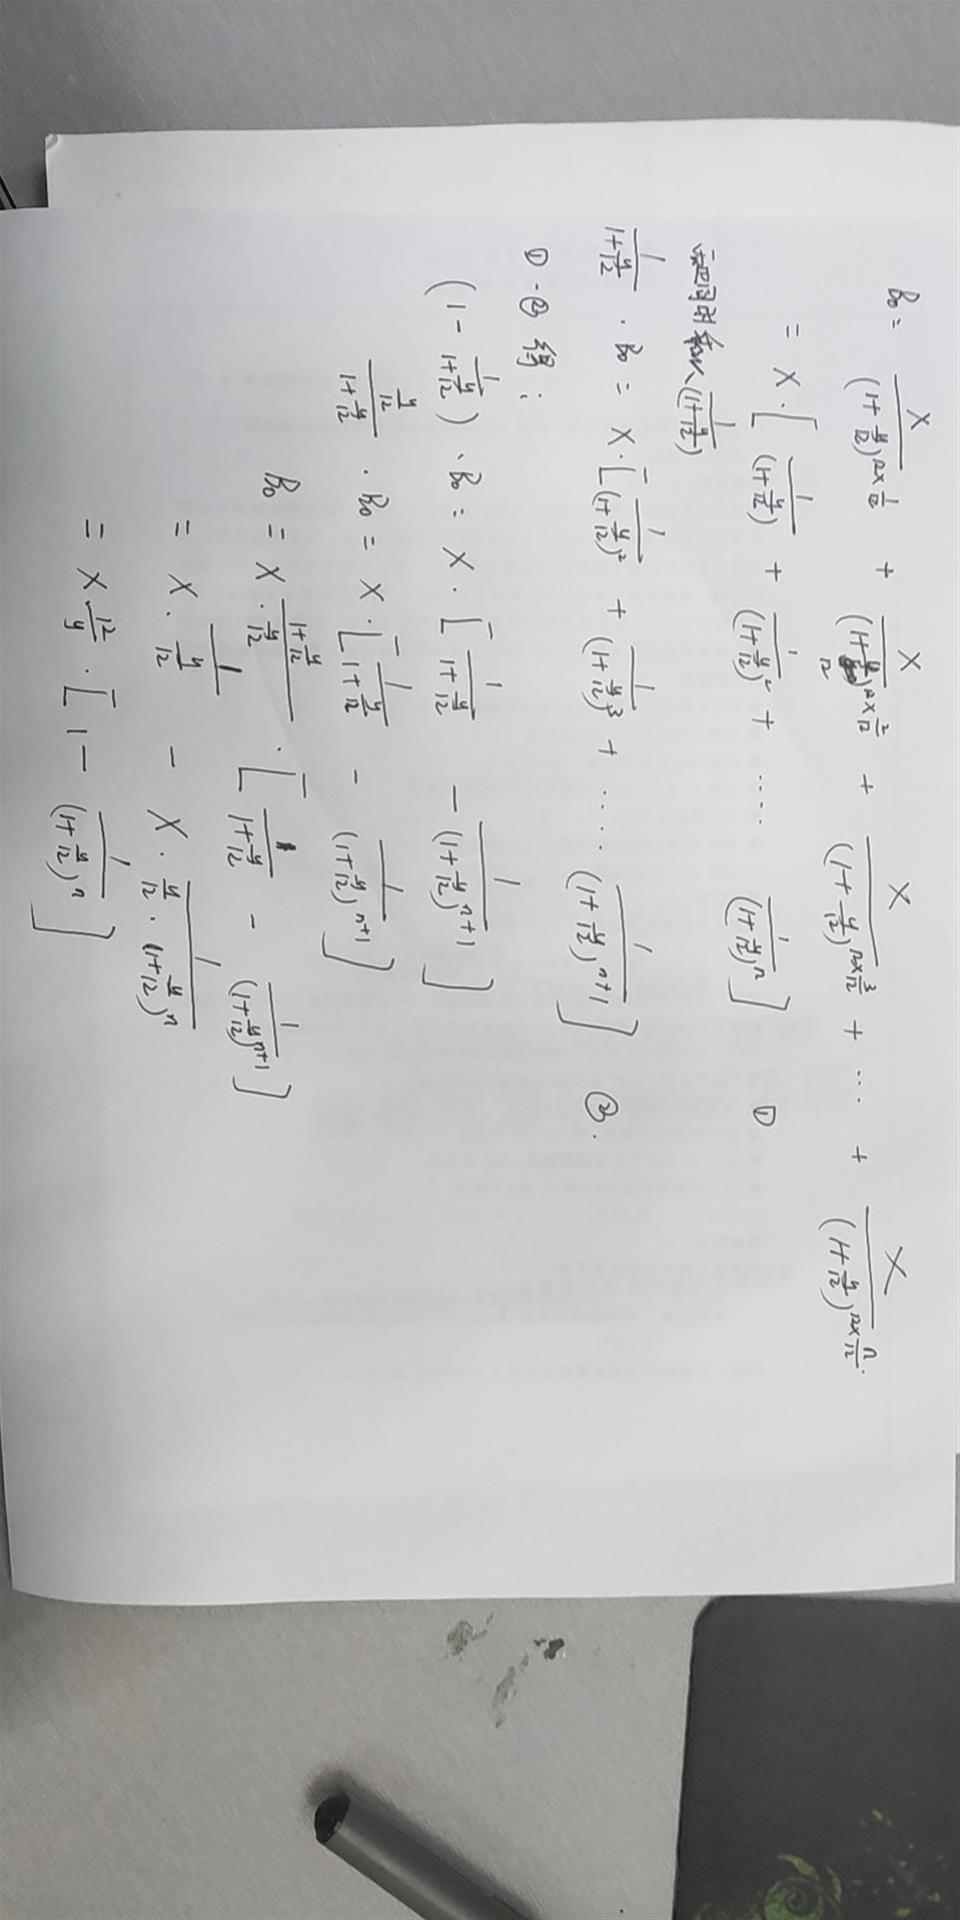 B₀ = X/(1+y/12)^(12×1/12) + X/(1+y/12)^(12×2/12) + X/(1+y/12)^(12×3/12) + ⋯ + X/(1+y/12)^(12×n/12).
= X·[1/(1+y/12) + 1/(1+y/12)² + ⋯⋯ 1/(1+y/12)ⁿ] ①
同时乘以 1/(1+y/12)
1/(1+y/12) · B₀ = X·[1/(1+y/12)² + 1/(1+y/12)³ + ⋯ 1/(1+y/12)^(n+1)] ②.
①-② 得:
(1 - 1/(1+y/12))·B₀ = X·[1/(1+y/12) - 1/(1+y/12)^(n+1)]
(y/12)/(1+y/12) · B₀ = X·[1/(1+y/12) - 1/(1+y/12)^(n+1)]
B₀ = X·(1+y/12)/(y/12) · [1/(1+y/12) - 1/(1+y/12)^(n+1)]
= X·1/(y/12) - X·1/(y/12·(1+y/12)ⁿ)
= X 12/y · [1 - 1/(1+y/12)ⁿ]